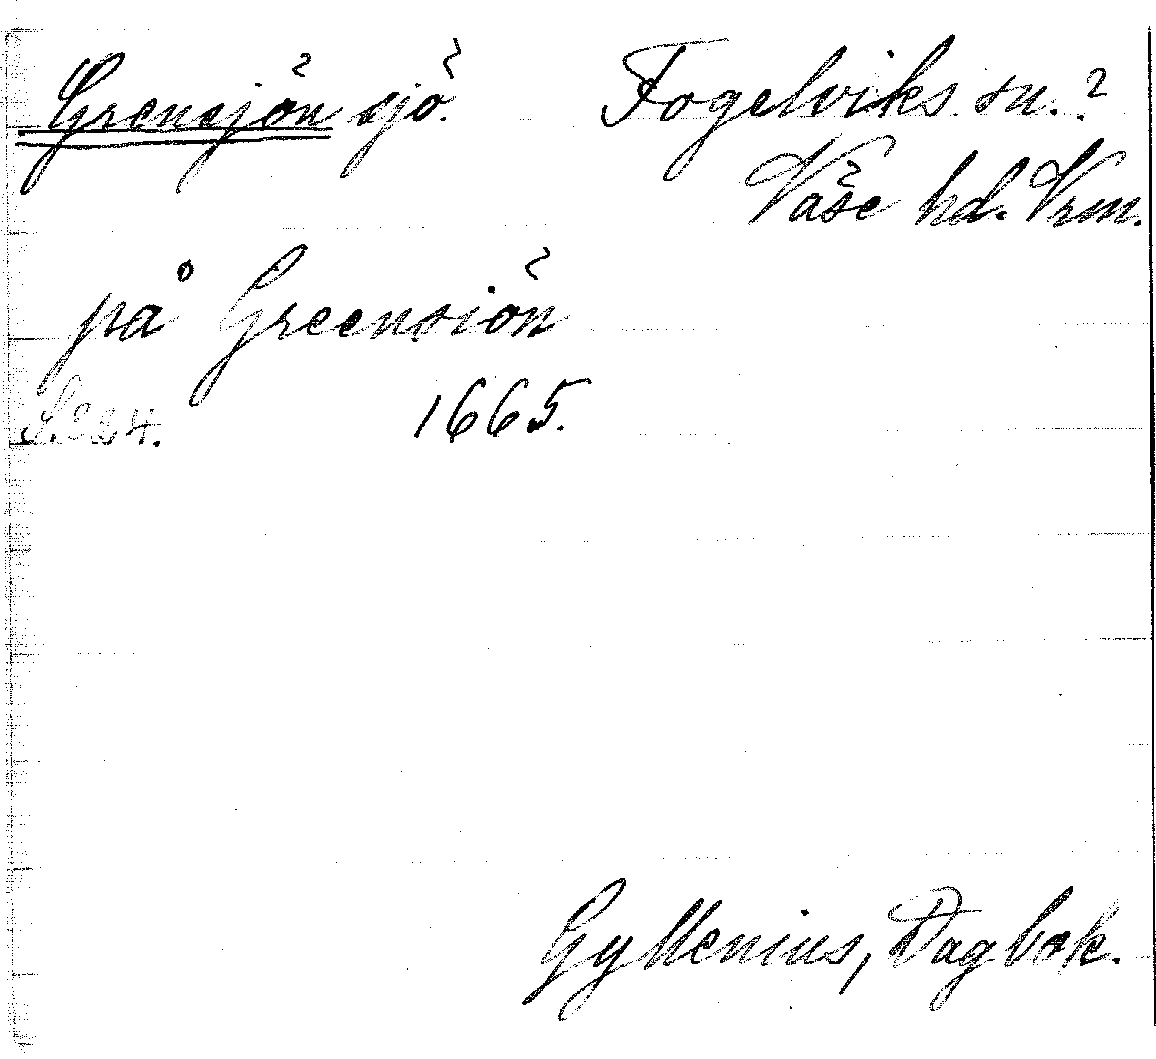 Grensjön sjö. Fogelviks sn.?
Väse hd. Vrm.
på Greensiön
S. 224. 1665.
Gyllenius, Dagbok.